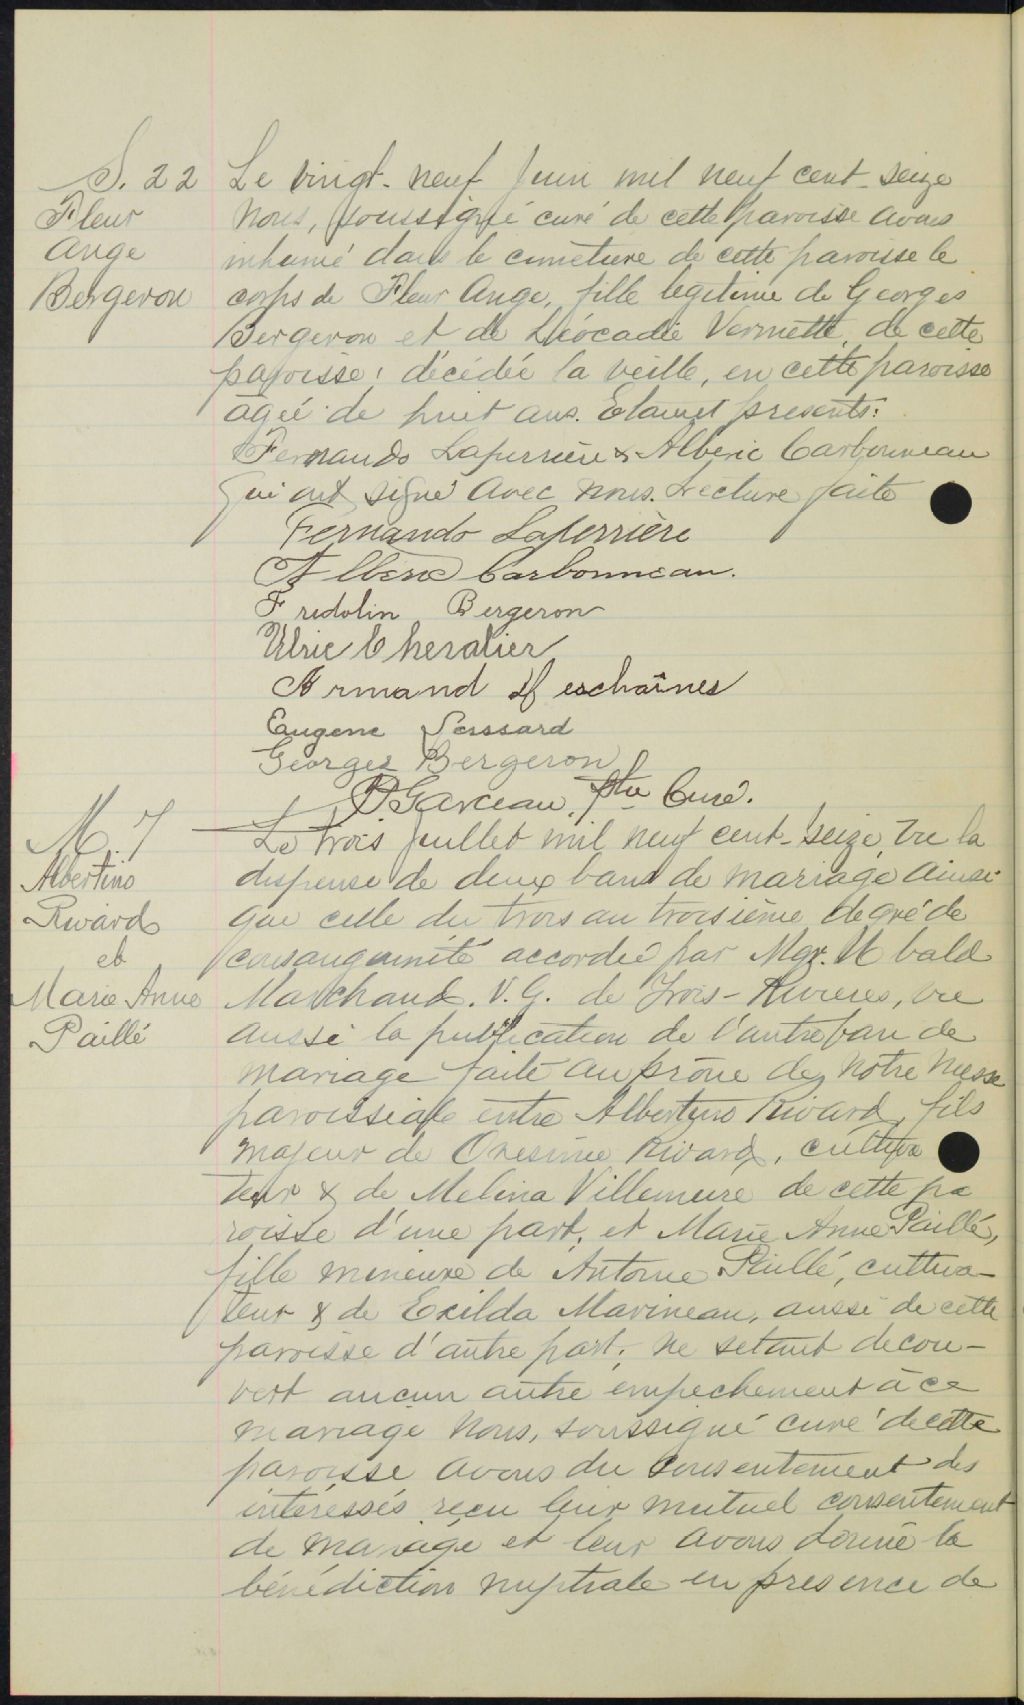 S. 22
Fleur
Ange
Bergeron
Le vingt-neuf Juin mil neuf cent-seize
nous, soussigné curé de cette paroisse avons
inhumé dans le cimetière de cette paroisse le
corps de Fleur Ange, fille legitime de Georges
Bergeron et de Léocadie Vermette, de cette
paroisse, décédée la veille, en cette paroisse
agée de huit ans. Etaient presents:
Fernando Laferrière & Alberic Carbonneau
qui ont signé avec nous. Lecture faite
Fernando Laferrière
Alberic Carbonneau.
Fridolin Bergeron
Ulric Chevalier
Armand Deschaînes
Eugene Lesssard
Georges Bergeron
Garceau, Ptre Curé.
M. 7
Albertino
Rivard
et
Marie Anne
Paillé
Le trois Juillet mil neuf cent-seize, vu la
dispense de deux bans de mariage ainsi
que celle du trois au troisième degré de
consanguinité accordée par Mgr. Ubald
Marchand. V.G. de Trois-Rivieres, vu
aussi la publication de l'autre ban de
mariage faite au prône de notre messe
paroissiale entre Albertino Rivard, fils
majeur de Onesime Rivard, cultiva
teur & de Melina Villemure de cette pa
roisse d'une part, et Marie Anne Paillé,
fille mineure de Antoine Paillé, cultiva-
teur & de Exilda Marineau, aussi de cette
paroisse d'autre part; ne setant decou-
vert aucun autre empechement à ce
mariage nous, soussigné curé de cette
paroisse avons du consentement des
intéressés reçu leur mutuel consentement
de mariage et leur avons donné la
bénédiction nuptiale en presence de